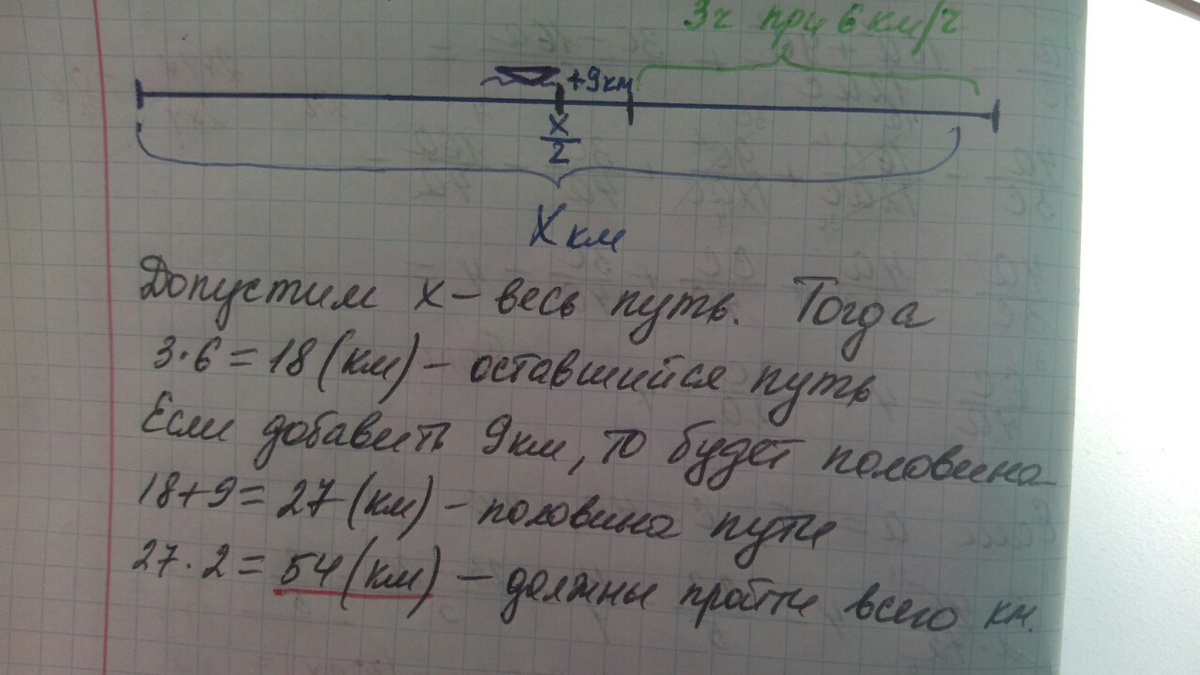 3ч при 6 км/ч
+9км
x
2
X км
Допустим x – весь путь. Тогда
3·6=18 (км) – оставшийся путь
Если добавить 9км, то будет половина
18+9=27 (км) – половина пути
27·2=54 (км) – должны пройти всего км.